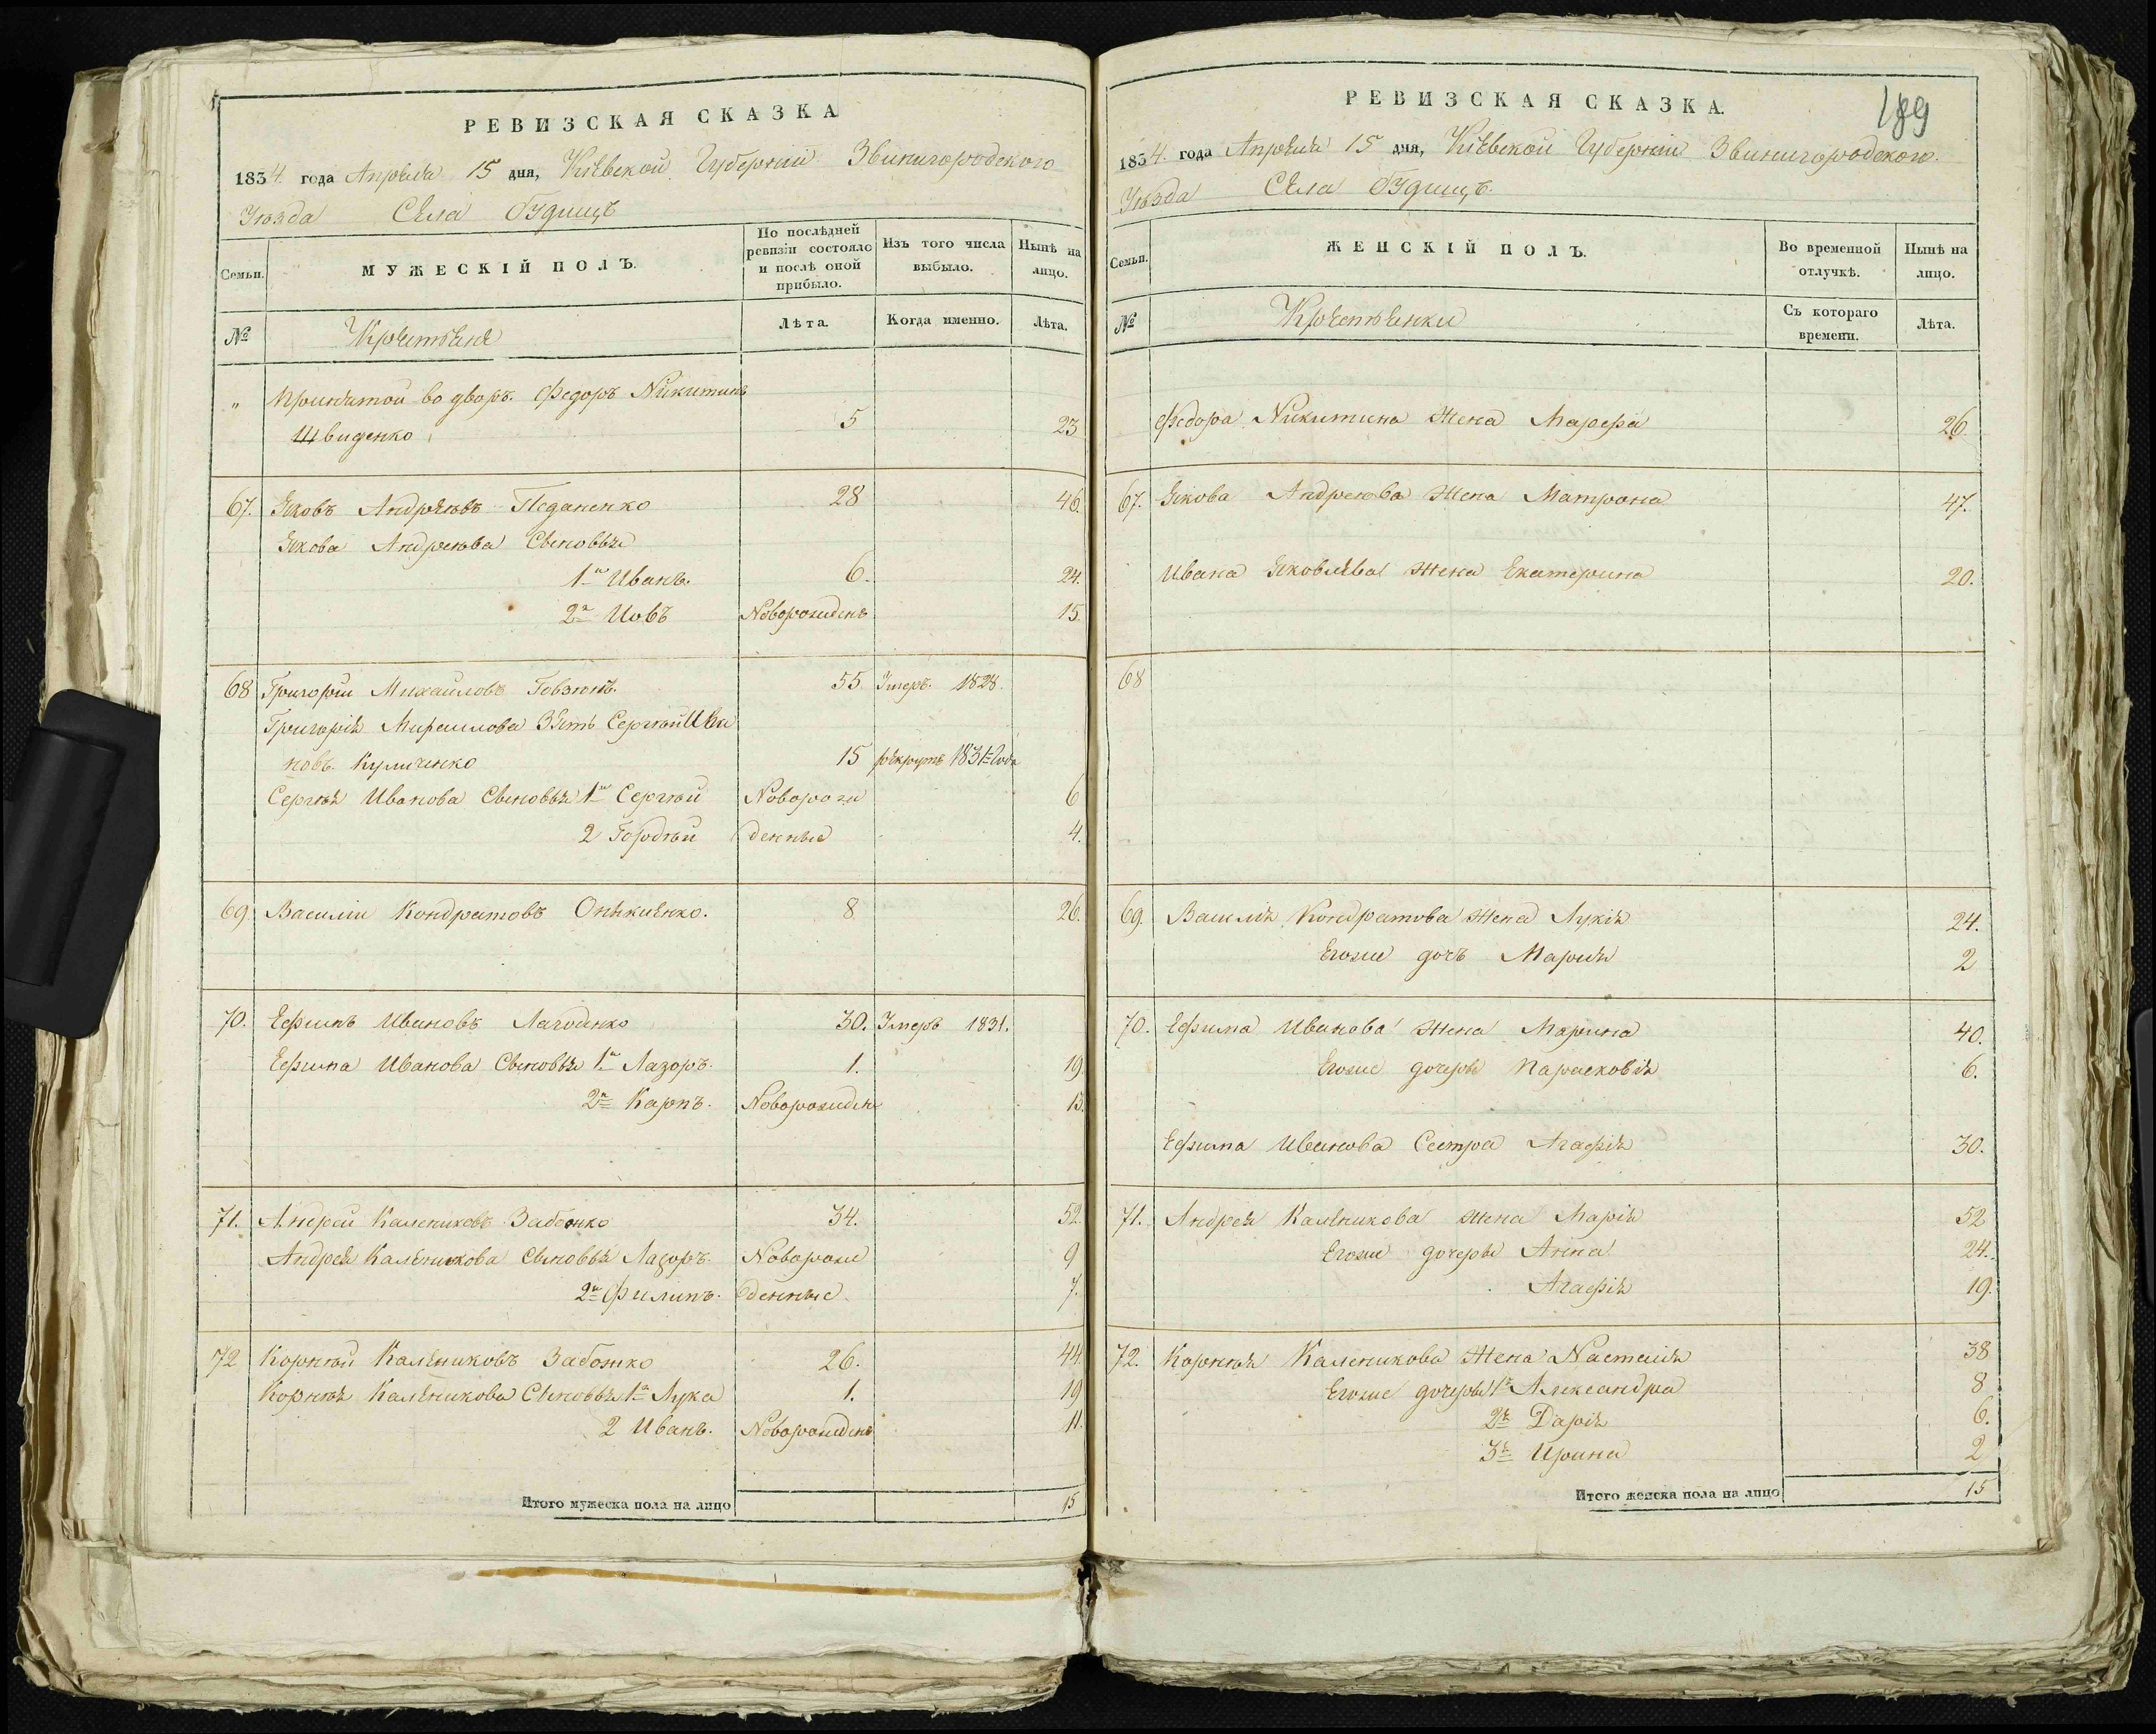 РЕВИЗСКАЯ СКАЗКА
1834 года Апреля 15 дня, Кіевской Губерніи Звинигородского
Уѣзда Села Будищъ
Семьи.
МУЖЕСКІЙ ПОЛЪ.
По послѣдней ревизіи состояло и послѣ оной прибыло.
Изъ того числа выбыло.
Нынѣ на лицо.
№
Крестьяне
Лѣта.
Когда именно.
Лѣта.
„ Принятой во дворъ. Федоръ Никитинъ
Швиденко 5 23
67. Яковъ Андреевъ 28 46.
Якова Андреева Сыновья
1й Иванъ. 6. 24.
2й Иовъ Новорожденъ 15.
68 Григорій Михайловъ 55 Умеръ. 1828.
Григорія Михаилова Зять Сергѣй Ива
новъ. Куличенко 15 рекрутъ 1831 Года
Сергѣя Иванова Сыновья 1й Сергѣй Новорож 6
2 Гордѣй денные 4.
69 Василій Кондратовъ 8 26.
70. Ефимъ Ивановъ Лагоденко 30. Умеръ 1831.
Ефима Иванова Сыновья 1й Лазоръ. 1. 19
2й Карпъ. Новорожден 13.
71. Андрей Калениковъ Забожко 34. 52.
Андрея Каленикова Сыновья Лазоръ. Новорож 9
2й Филипъ. денные. 7.
72 Корнѣй Калениковъ Забожко 26. 44.
Корнѣя Каленикова Сыновья 1й Лука 1. 19
2 Иванъ. Новорожденъ 11.
Итого мужеска пола на лицо 15
189
РЕВИЗСКАЯ СКАЗКА.
1834. года Апреля 15 дня, Кіевской Губерніи Звинигородского.
Уѣзда Села Будищъ.
Семьи.
ЖЕНСКІЙ ПОЛЪ.
Во временной отлучкѣ.
Нынѣ на лицо.
№
Крестьянки
Съ котораго времени.
Лѣта.
Федора Никитина жена Марфа 26.
67. Якова Андреева жена Матрона 47.
Ивана Яковлева жена Екатерина 20.
68
69. Василія Кондратова жена Лукія 24.
Егоже дочъ Марія 2
70. Ефима Иванова жена Марина 40.
Егоже дочеръ Парасковія 6.
Ефима Иванова Сестра Агафія 30.
71. Андрея Каленикова жена Марія 52
Егоже дочеры Анна 24.
Агафія 19.
72. Корнѣя Каленикова жена Настасія 38
Егоже дочеры 1я Александра 8
2я Дарія 6.
3я Ирина 2
Итого женска пола на лицо 15